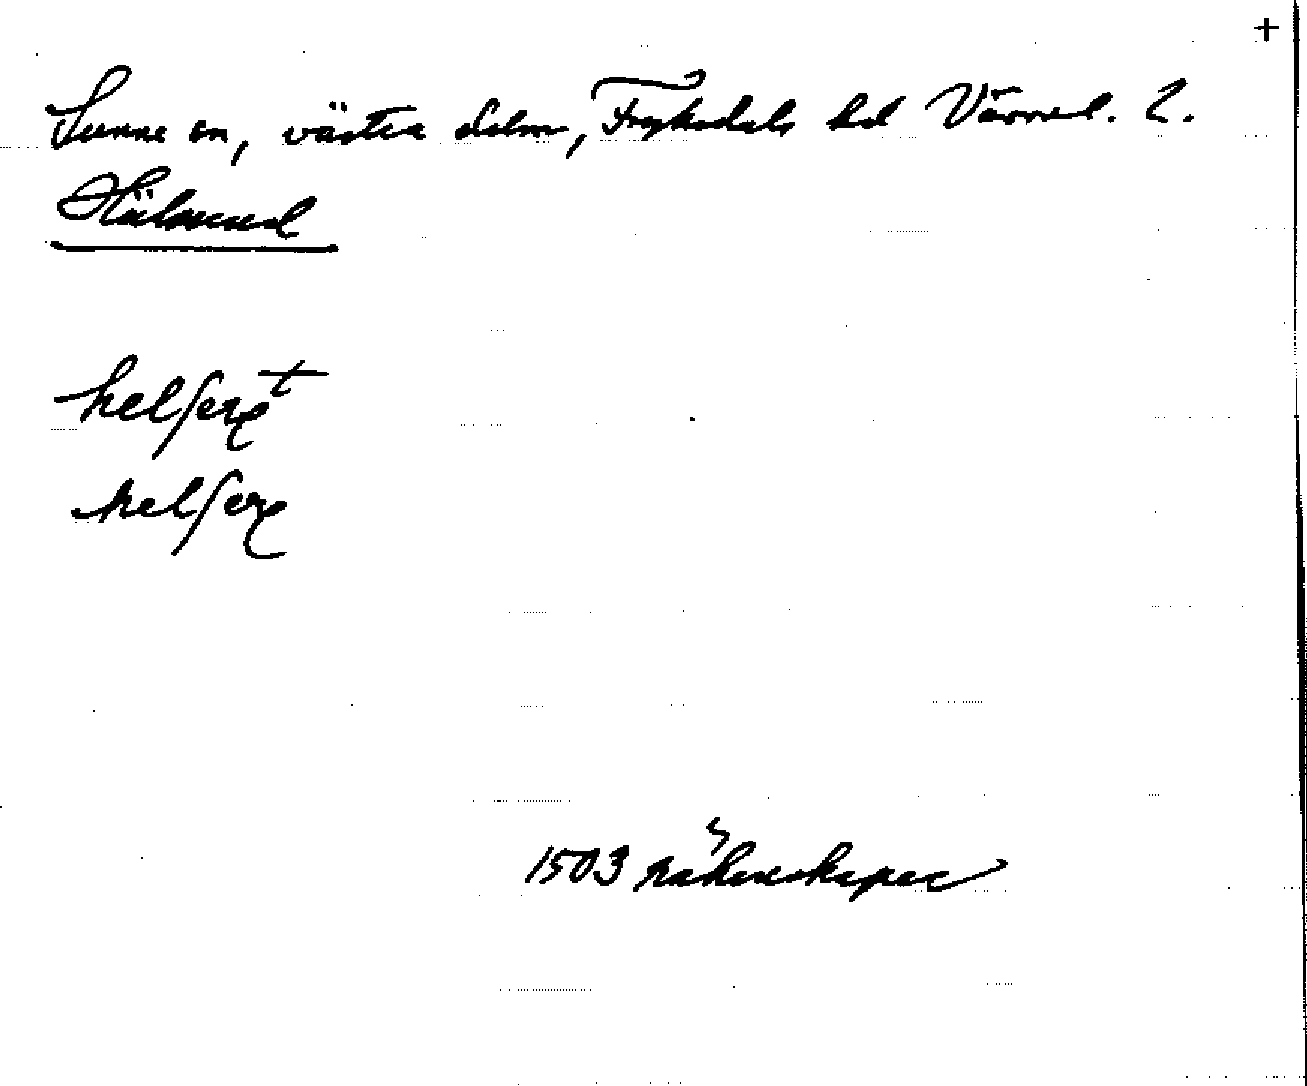 +
Sunne sn, västra delen, Fryksdals hd Värml. L.
Hälserud
helseræt
helseræ
1503 räkenskaper